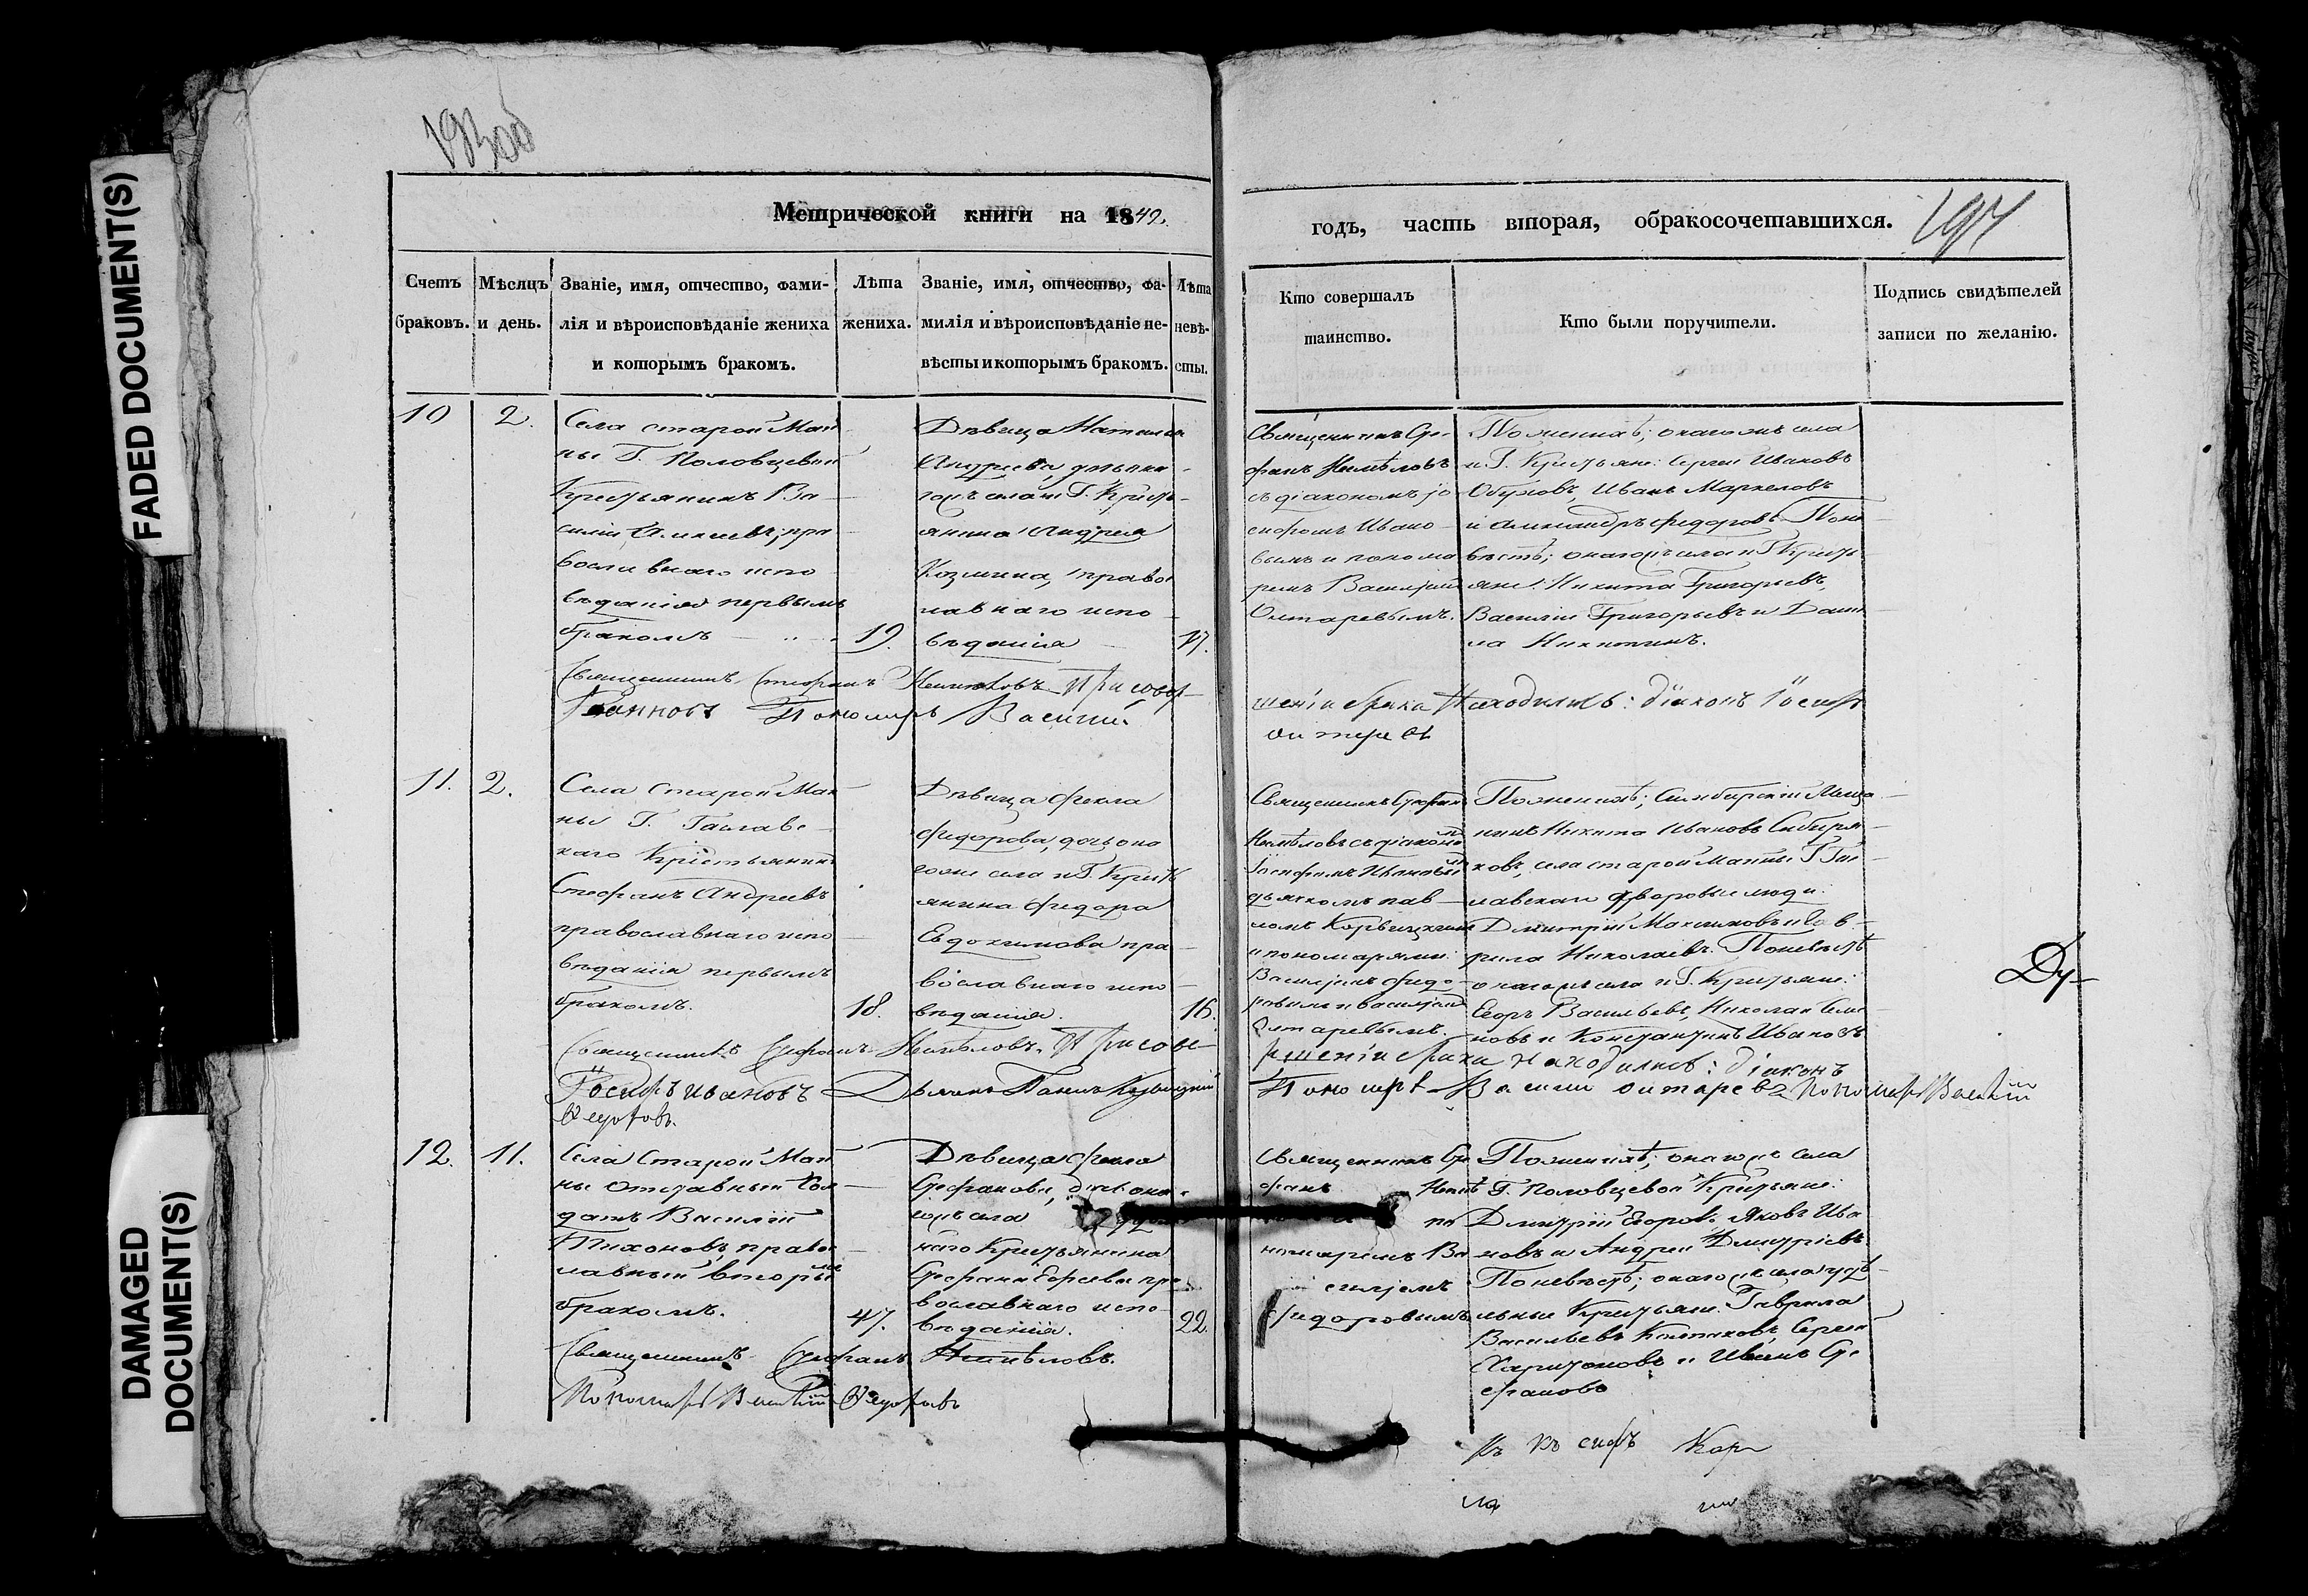 193об
Метрической книги на 1842.
годъ, часть вторая, обракосочетавшихся.
194
Счетъ браковъ.
Мѣсяцъ и день.
Званіе, имя, отчество, фами-
лія и вѣроисповѣданіе жениха
и которымъ бракомъ.
Лѣта
жениха.
Званіе, имя, отчество, фа-
милія и вѣроисповѣданіе не-
вѣсты и которымъ бракомъ.
Лѣта
невѣ-
сты.
Кто совершалъ
таинство.
Кто были поручители.
Подпись свидѣтелей
записи по желанію.
10
2.
Села старой Май
ны Г. Половцевой
Крестьянинъ Ва-
силій Алексеевъ, пра
вославнаго испо
вѣданія первымъ
бракомъ
19.
Дѣвица Наталья
Андреева, дочь она
гожъ села и Г. Крест-
янина Андрея
Козмина, право
славнаго испо-
вѣданія
17.
Священникъ Сте-
фанъ Немѣловъ
съ діакономъ Іо
сифомъ Ивано-
вымъ и понома
ремъ Василіем
Олтаревымъ.
По женихѣ; онагожъ села
и Г. Крестьяне: Сергей Ивановъ
Обуховъ, Иванъ Маркеловъ
и Александръ Федоровъ. По не-
вѣстѣ; онагожъ села и Г. Кресть
яне: Никита Григорьевъ,
Василій Григорьевъ и Дани
ла Никитинъ.
Священникъ Стефанъ Немѣловъ. При совер-
шеніи брака находились: діаконъ Іосифъ
Іоанновъ Пономарь Василий
Олтаревъ
11.
2.
Села Старой Май
ны Г.
каго Крестьянинъ
Стефанъ Андреевъ
православнаго испо
вѣданія первымъ
бракомъ.
18.
Дѣвица Фекла
Федорова, дочь она
гоже села и Г. Крест
янина Федора
Евдокимова пра-
вославнаго испо-
вѣданія.
16.
Священникъ Стефан
Немѣловъ съ діаконом
Іосифомъ Ивановым
дьячкомъ Пав-
ломъ
и пономарями:
Василіемъ Федо-
ровымъ и Василіем
Олтаревымъ.
По женихѣ; Симбирскій Меща-
нинъ Никита Ивановъ Сибиря-
ковъ, села старой Майны Г.
дворовые люди:
Дмитрій Максимовъ и Гав-
рила Николаевъ. По невѣстѣ
онагожъ села и Г. Крестьяне:
Егоръ Васильевъ, Николай Семе
новъ и Константинъ Ивановъ
Священникъ Стефанъ Немѣловъ. При сове-
ршеніи брака находились: діаконъ
Іосифъ Ивановъ Дьячекъ Павелъ
Пономарь Василий Олтаревъ Пономарь Василій
Федоровъ.
Ду-
12.
11.
Села Старой Май
ны отставный Сол-
датъ Василій
Тихоновъ, правос-
лавный вторымъ
бракомъ.
47.
Дѣвица Фекла
Стефанова, дочь она-
гожъ села
наго Крестьянина
Стефана пра
вославнаго испо-
вѣданія.
22.
Священникъ Сте
фанъ Немѣ
по
номаремъ Ва
силіемъ
Федоровымъ
По женихѣ; онагожъ села
Г. Половцевой Крестьяне:
Дмитрій Егоровъ, Яковъ Ива
новъ и Андрей Дмитріевъ.
По невѣстѣ; онагожъ села удѣ-
льные Крестьяне: Гаврила
Васильевъ Сергей
Харитоновъ и Иванъ Сте
фановъ
Священникъ Стефанъ Немѣловъ.
Пономарь Василій Федоровъ